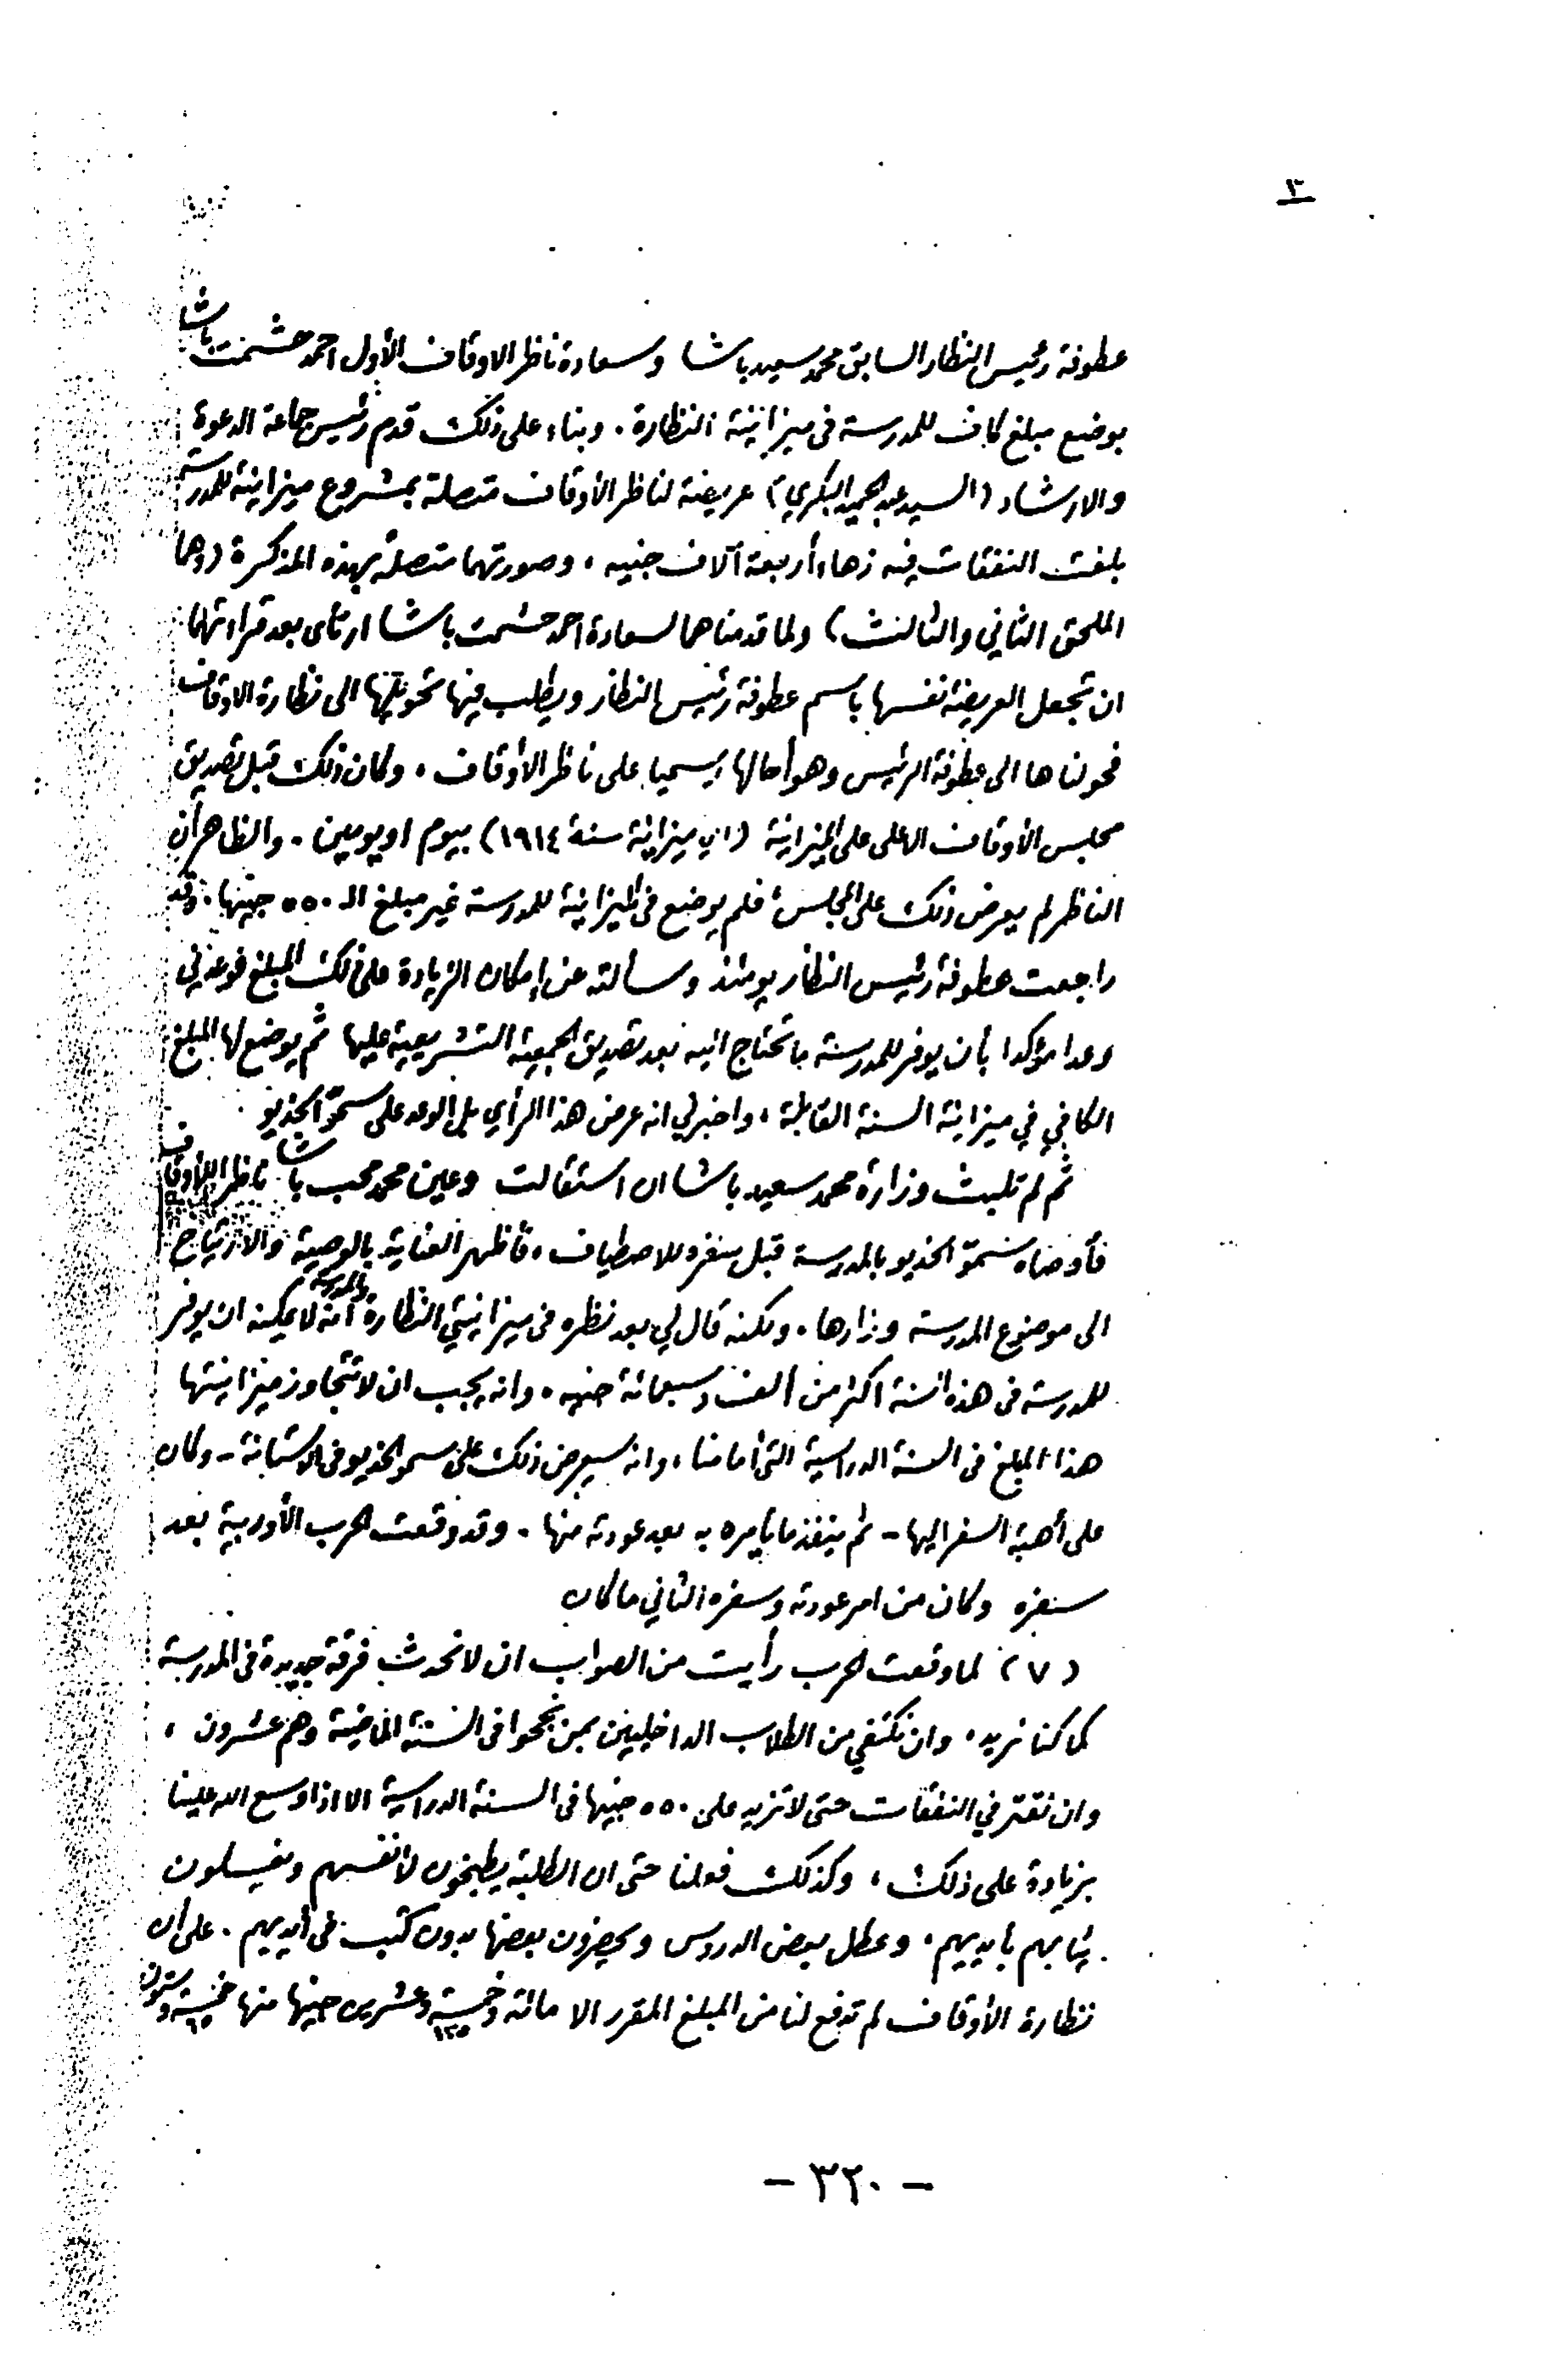 ٣
عطوفة رئيس النظار السابق محمد سعيد باشا وسعادة ناظر الاوقاف الأول احمد حشمت باشا
بوضع مبلغ كاف للمدرسة في ميزانية النظارة. وبناء على ذلك قدم رئيس جماعة الدعوة
والارشاد (السيد عبد الحميد البكري) عريضة لناظر الأوقاف متصلة بمشروع ميزانية للمدرسة
بلغت النفقات فيه زهاء أربعة آلاف جنيه، وصورتهما متصلة بهذه المذكرة (وهما
الملحق الثاني والثالث) ولما قدمناهما لسعادة احمد حشمت باشا ارتأى بعد قراءتهما
ان تجعل العريضة نفسها باسم عطوفة رئيس النظار ويطلب فيها تحويلها الى نظارة الاوقاف
فحولناها الى عطوفة الرئيس وهو أحالها رسميا على ناظر الأوقاف. وكان ذلك قبل تصديق
مجلس الأوقاف الاعلى على الميزانية (اي ميزانية سنة ١٩١٤) بيوم او يومين. والظاهر أن
الناظر لم يعرض ذلك على المجلس فلم يوضع في الميزانية للمدرسة غير مبلغ الـ ٥٥٠ جنيها. وقد
راجعت عطوفة رئيس النظار يومئذ وسألته عن إمكان الزيادة على ذلك المبلغ فوعدني
وعدا مؤكدا بأن يوفر للمدرسة ما تحتاج اليه بعد تصديق الجمعية التشريعية عليها ثم يوضع لها المبلغ
الكافي في ميزانية السنة القابلة، واخبرني انه عرض هذا الرأي بل الوعد على سموّ الخديو.
ثم لم تلبث وزارة محمد سعيد باشا ان استقالت وعين محمد محب باشا ناظر الأوقاف
فأوصاه سموّ الخديو بالمدرسة قبل سفره للاصطياف، فأظهر العناية بالوصية والارتياح
الى موضوع المدرسة وزارها. ولكنه قال لي بعد نظره في ميزانيتي النظارة والمدرسة أنه لا يمكنه ان يوفر
للمدرسة في هذه السنة اكثر من ألف وسبعمائة جنيه. وانه يجب ان لا تتجاوز ميزانيتها
هذا المبلغ في السنة الدراسية التي أمامنا، وانه سيعرض ذلك على سمو الخديو في الاستانة - وكان
على أهبة السفر اليها - ثم ينفذ ما يأمره به بعد عودته منها. وقد وقعت الحرب الأوربية بعد
سفره وكان من امر عودته وسفره الثاني ما كان
(٧) لما وقعت الحرب رأيت من الصواب ان لا نحدث فرقة جديدة في المدرسة
كما كنا نريد، وان نكتفي من الطلاب الداخليين بمن نجحوا في السنة الماضية وهم عشرون،
وان نقتر في النفقات حتى لا تزيد على ٥٥٠ جنيها في السنة الدراسية الا اذا وسع الله علينا
بزيادة على ذلك، وكذلك فعلنا حتى ان الطلبة يطبخون لأنفسهم ويغسلون
ثيابهم بأيديهم، وعطل بعض الدروس ويحضرون بعضها بدون كتب في أيديهم. على أن
نظارة الأوقاف لم تدفع لنا من المبلغ المقرر الا مائة وخمسة وعشرين جنيها منها خمسة وستون
١٢٥ ٦٥
- ٣٢٠ -